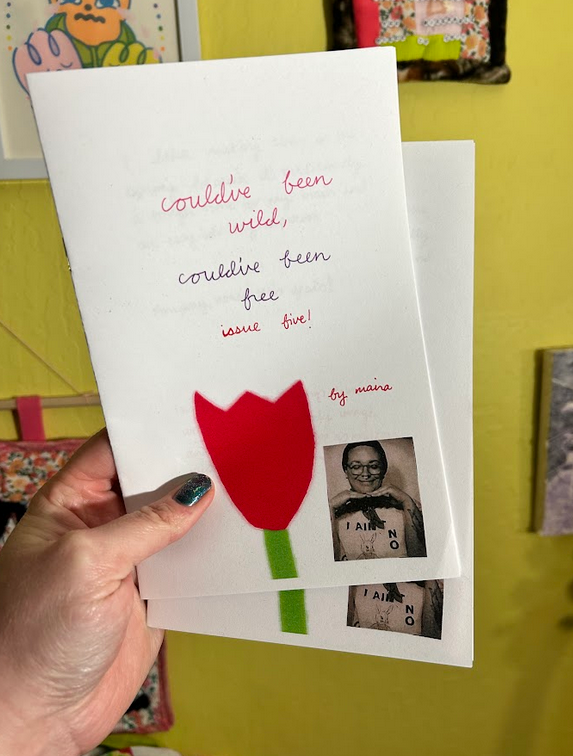 could've been
wild,
could've been
free
issue five!
by maira
I AIN'T
NO
I AIN'T
NO